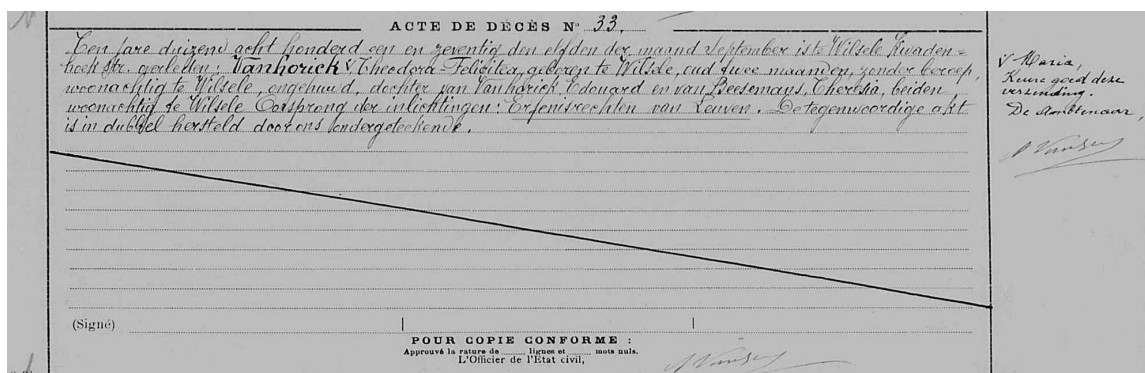 ACTE DE DÉCÈS N° 33.
Ten jare duizend acht honderd een en zeventig den elfden der maand September is te Wilsele Kwaden=
hoek str. overleden : Vanhorick v Theodora-Felicitea, geboren te Wilsele, oud twee maanden, zonder beroep,
woonachtig te Wilsele, ongehuwd, dochter van Vanhorick, Edouard en van Beesemays, Theresia, beiden
woonachtig te Wilsele. Oorsprong der inlichtingen : Erfenisrechten van Leuven. De tegenwoordige akt
is in dubbel hersteld door ons ondergeteekende.
v Maria,
Keure goed deze
verzending.
De Ambtenaar,
(Signé)
POUR COPIE CONFORME :
Approuvé la rature de lignes et mots nuls.
L'Officier de l'État civil,